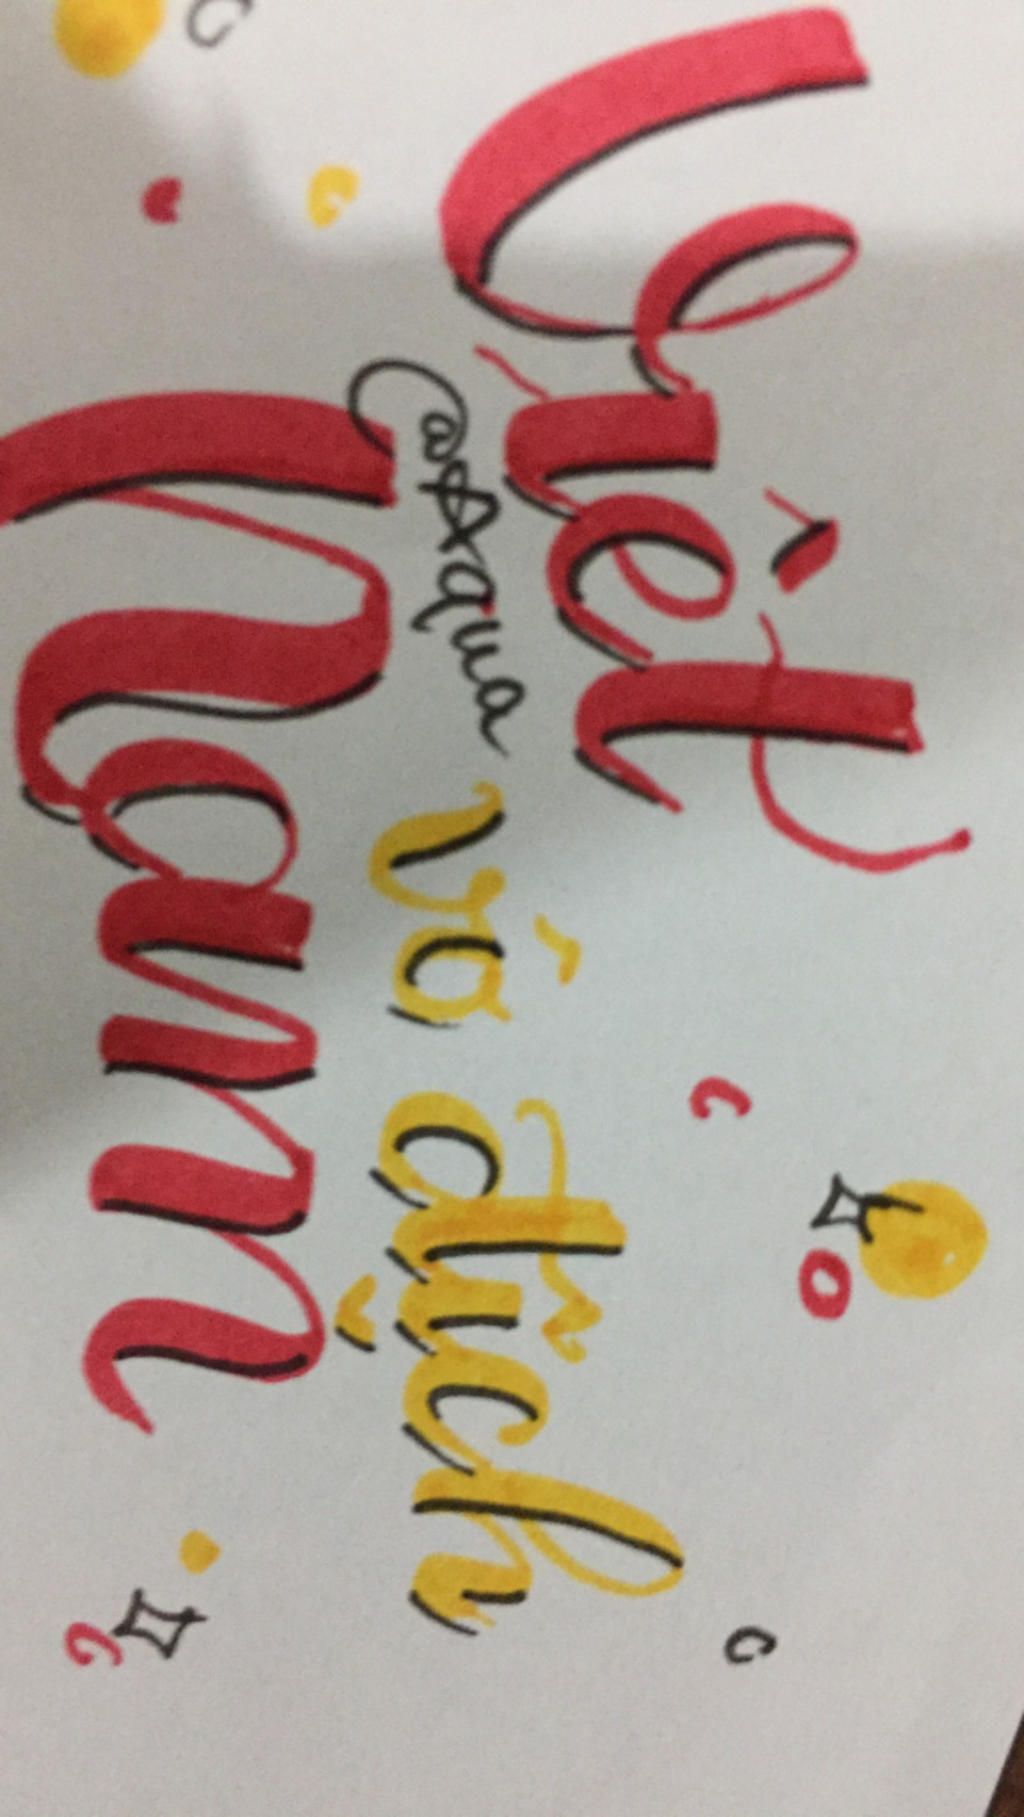 Việt
@Aqua
vô địch
Nam